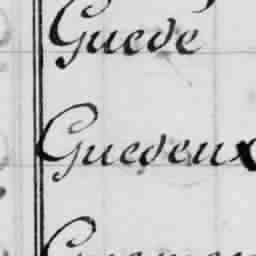 Guedé
Guedeux